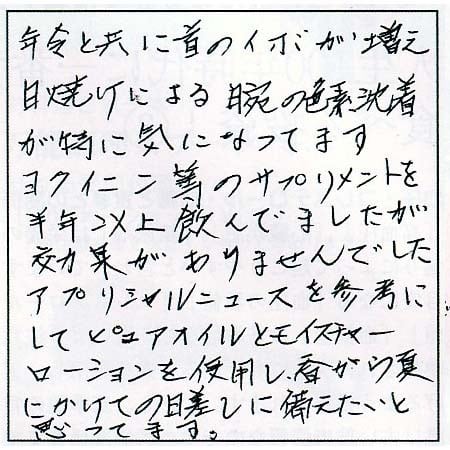 年令と共に首のイボが増え
日焼けによる腕の色素沈着
が特に気になってます
ヨクイニン等のサプリメントを
半年以上飲んでましたが
効果がありませんでした
アプリシャルニュースを参考に
してピュアオイルとモイスチャー
ローションを使用し、春から夏
にかけての日差しに備えたいと
思ってます。